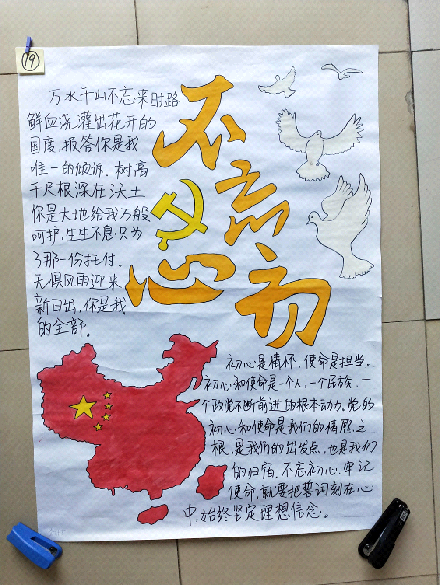 19
万水千山不忘来时路
鲜血浇灌出花开的
国度.报答你是我
唯一的倾诉.树高
千尺根深在沃土
你是大地给我万般
呵护,生生不息只为
了那一份托付.
无惧风雨迎来
新日出,你是我
的全部.
不忘初心
初心是情怀,使命是担当.
初心和使命是一个人,一个民族,一
个政党不断前进的根本动力.党的
初心和使命是我们的情怀之
根,是我们的出发点,也是我们
的归宿.不忘初心,牢记
使命,就要把誓词刻在心
中,始终坚定理想信念.